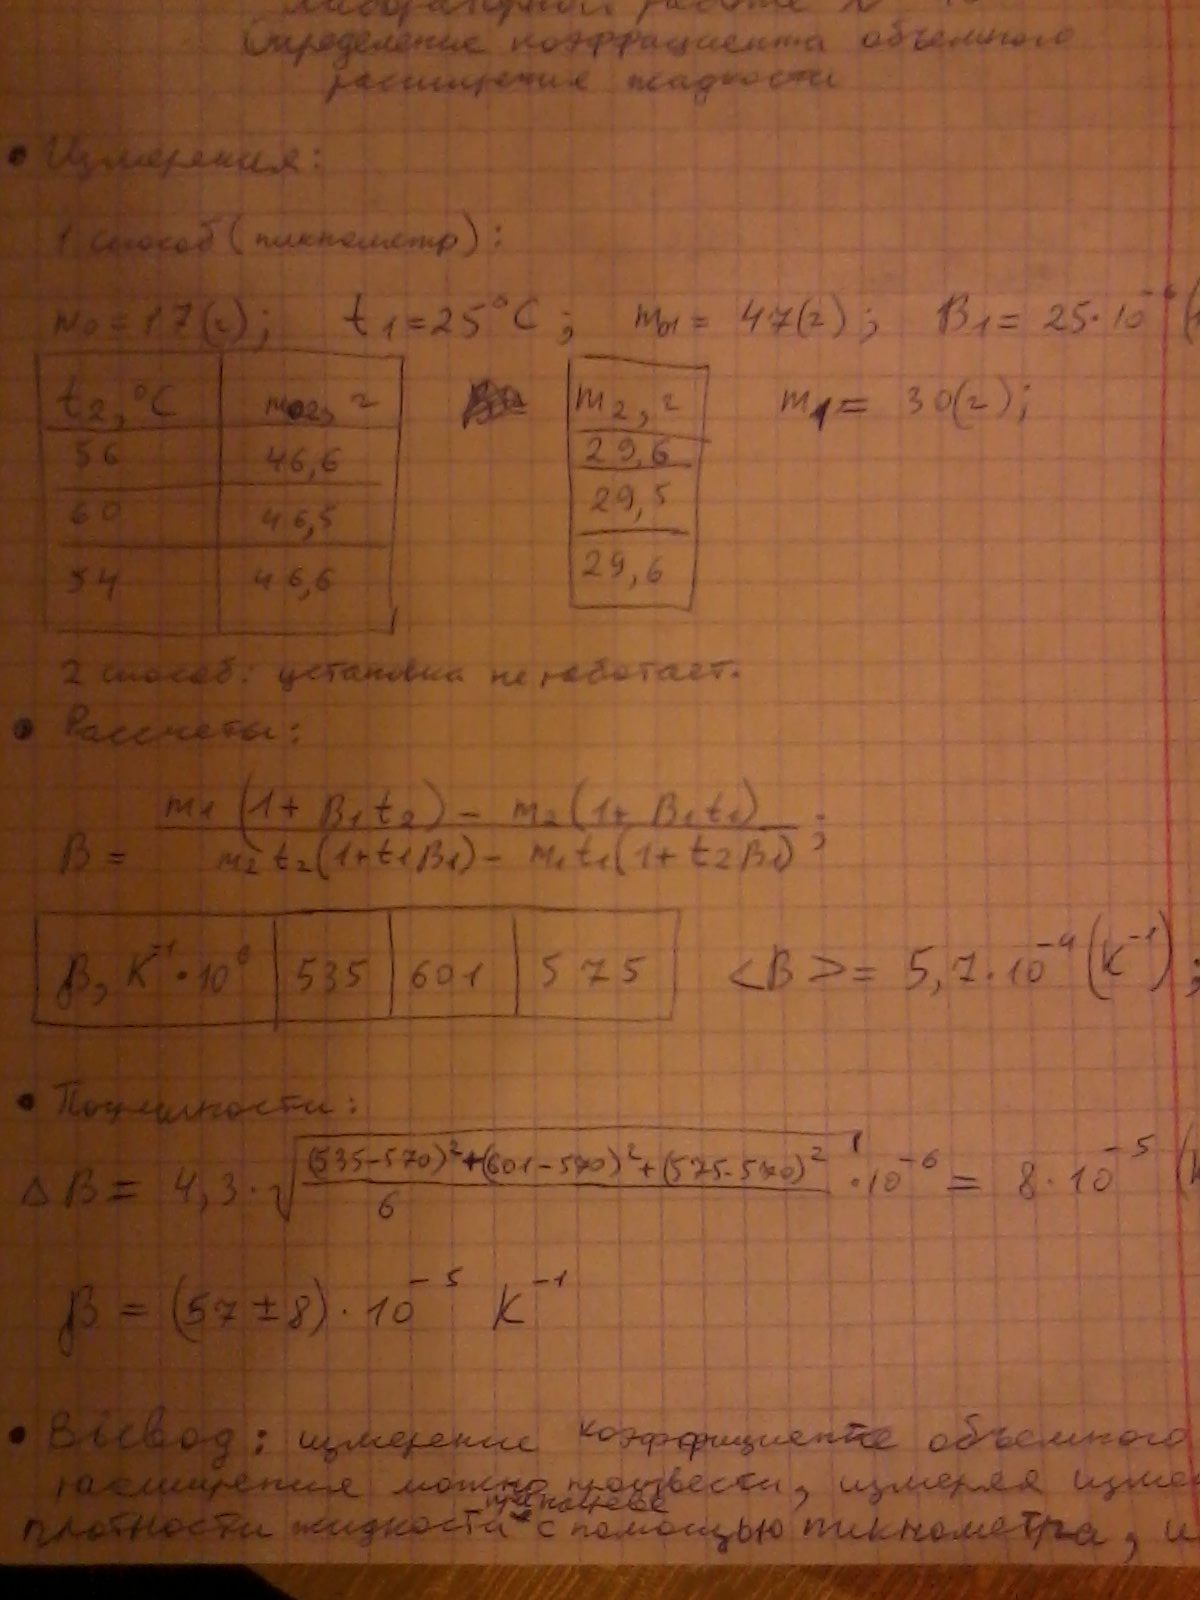 лабораторной работе №
Определение коэффициента объемного
расширения жидкости
• Измерения:
1 способ (пикнометр):
m₀ = 17(г); t₁ = 25°C; m₀₁ = 47(г); β₁ = 25·10⁻⁶
t₂, °C m₀₂, г m₂, г m₁ = 30(г);
56 46,6 29,6
60 46,5 29,5
54 46,6 29,6
2 способ: установка не работает.
• Рассчеты:
β = (m₁(1 + β₁t₂) − m₂(1 + β₁t₁)) / (m₂t₂(1 + t₁β₁) − m₁t₁(1 + t₂β₁));
β, K⁻¹·10⁶ 535 601 575 <β> = 5,7·10⁻⁴ (K⁻¹);
• Погрешности:
Δβ = 4,3·√(((535−570)²+(601−570)²+(575−570)²) / 6)·10⁻⁶ = 8·10⁻⁵
β = (57 ± 8)·10⁻⁵ K⁻¹
• Вывод: измерение коэффициента объемного
расширения можно произвести, измеряя
плотности жидкости при нагреве с помощью пикнометра,